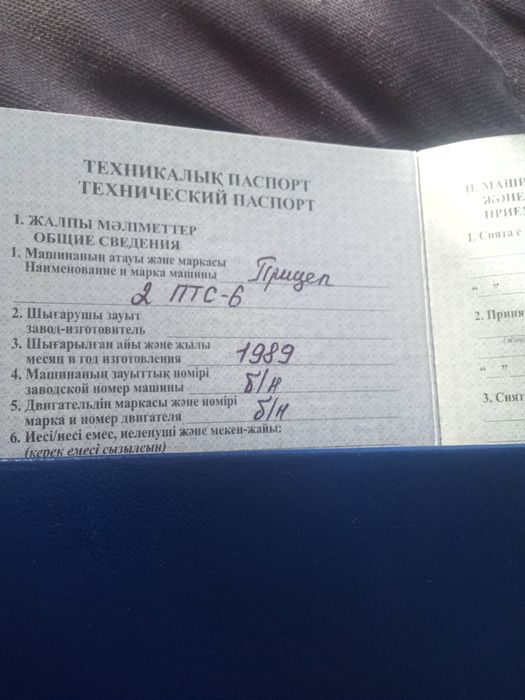 ТЕХНИКАЛЫҚ ПАСПОРТ
ТЕХНИЧЕСКИЙ ПАСПОРТ
1. ЖАЛПЫ МӘЛІМЕТТЕР
ОБЩИЕ СВЕДЕНИЯ
1. Машинаның атауы және маркасы
Наименование и марка машины Прицеп
2 ПТС-6
2. Шығарушы зауыт
завод-изготовитель
3. Шығарылған айы және жылы
месяц и год изготовления 1989
4. Машинаның зауыттық нөмірі
заводской номер машины б/н
5. Двигательдің маркасы және нөмірі
марка и номер двигателя б/н
6. Иесі/иесі емес, иеленуші және мекен-жайы:
(керек емесі сызылсын)
II. МАШИ
ЖӘНЕ
ПРИЕМ
1. Снята с
" "
2. Приня
" "
3. Снят